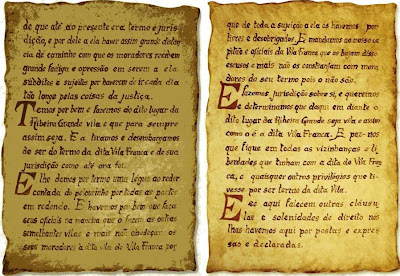 de que até ao presente era termo e juris
dição, e por dele a ela haver assim grande distan
cia de caminho com que os moradores recebem
grande fadiga e opressão em serem a ela
súbditos e sujeitos por haverem de ir cada dia
tão longe pelas coisas da justiça.
Temos por bem e fazemos do dito lugar da
Ribeira Grande vila e que para sempre
assim seja. E a tiramos e desmembramos
de ser do termo da dita Vila Franca e de sua
jurisdição como até ora foi.
E lhe damos por termo uma légua ao redor
contada do pelourinho por todas as partes
em redondo. E havemos por bem que faça
seus oficiais na maneira que o fazem as outras
semelhantes vilas e mais não obedeçam os
seus moradores à dita vila de Vila Franca por
que de toda a sujeição a ela os havemos por
livres e desobrigados. E mandamos ao nosso ca
pitão e oficiais da Vila Franca que os hajam disso
escusos e mais não os constranjam com mora
dores do seu termo pois o não são.
E fazemos jurisdição sobre si, e queremos
e determinamos que daqui em diante o
dito lugar da Ribeira Grande seja vila e assim
como o é a dita Vila Franca. E paz-nos
que fique em todas as vizinhanças e li
berdades que tinham com a dita de Vila Fran
ca, e quaisquer outros privilégios que ti
vesse por ser termo da dita Vila.
E se aqui falecem outras cláusu
las e solenidades de direito nós
lhas havemos aqui por postas e expres
sas e declaradas.